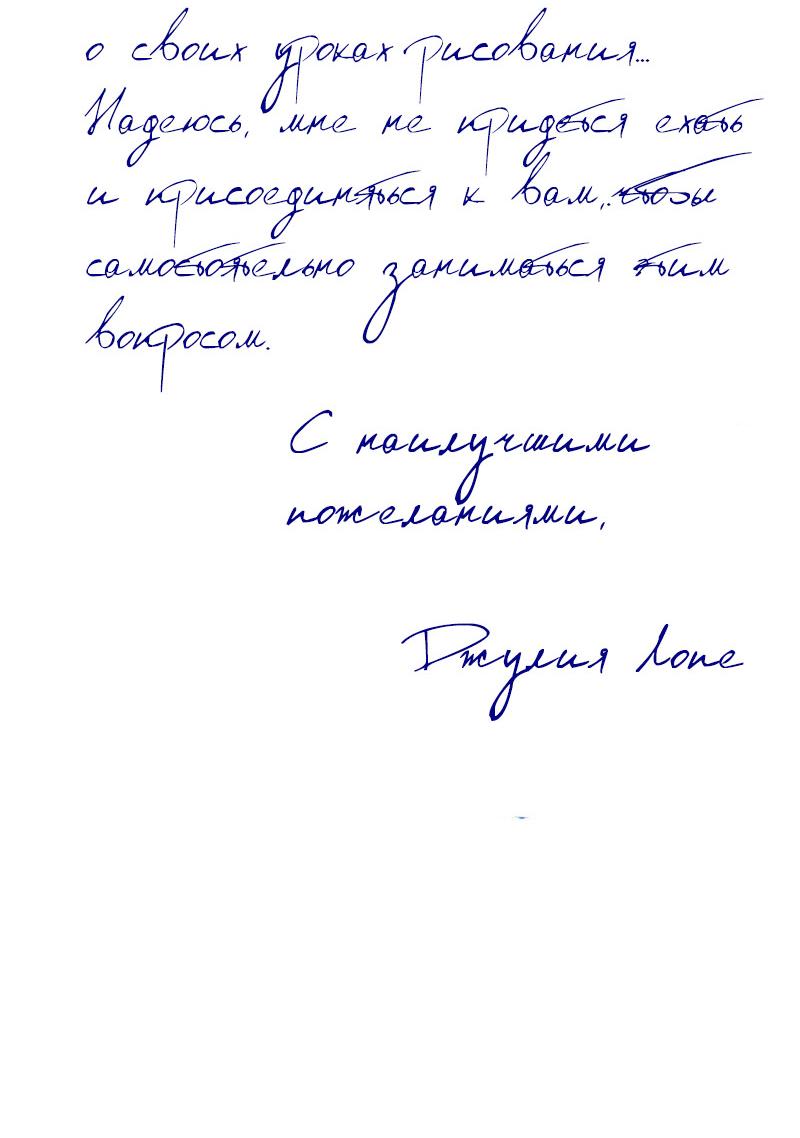 о своих уроках рисования...
Надеюсь, мне не придется ехать
и присоединяться к вам, чтобы
самостоятельно заниматься этим
вопросом.
С наилучшими
пожеланиями,
Джулия Лопе